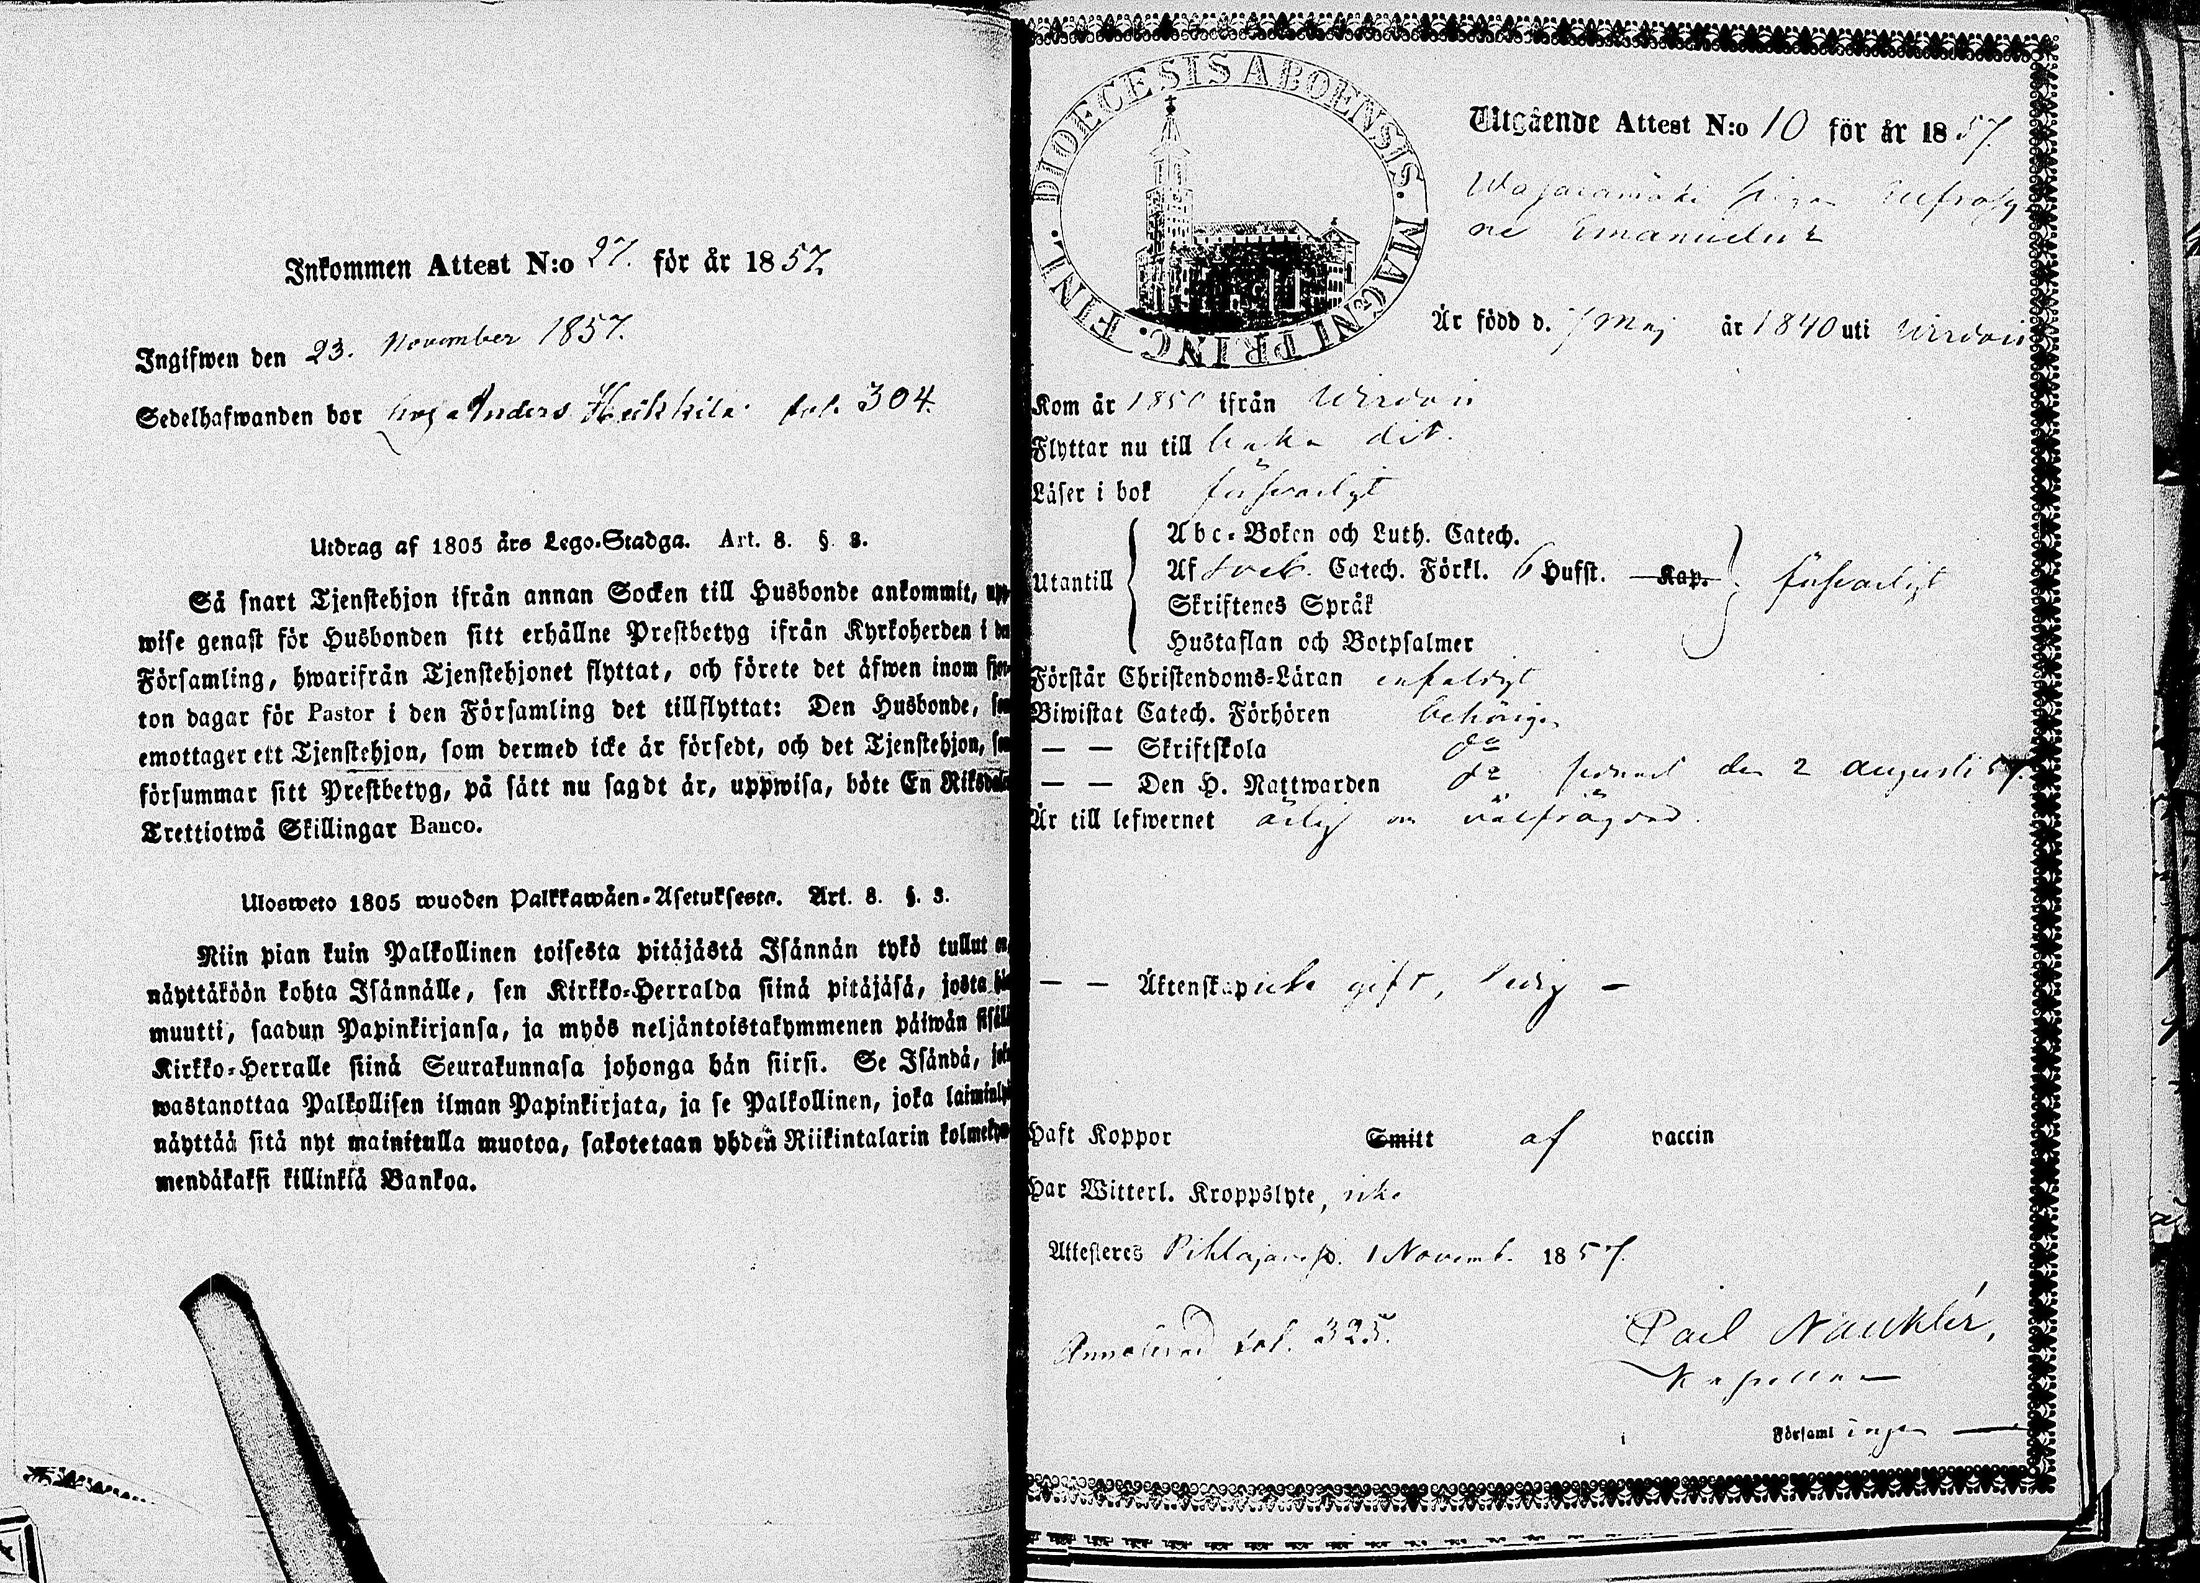 Inkommen Attest N:o 27. för år 1857.
Ingifwen den 23. November 1857.
Sedelhafwanden bor Anders Heikkilä fol. 304.
Utdrag af 1805 års Lego-Stadga. Art. 8. §. 3.
Så snart Tjenstehjon ifrån annan Socken till Husbonde ankommit, upp-
wise genast för Husbonden sitt erhållne Prestbetyg ifrån Kyrkoherden i den
Församling, hwarifrån Tjenstehjonet flyttat, och förete det äfwen inom fjor-
ton dagar för Pastor i den Församling det tillflyttat: Den Husbonde, som
emottager ett Tjenstehjon, som dermed icke är försedt, och det Tjenstehjon, som
försummar sitt Prestbetyg, på sätt nu sagdt är, uppwisa, böte En Riksdaler
Trettiotwå Skillingar Banco.
Ulosweto 1805 wuoden Palkkawäen-Asetuksesta. Art. 8. §. 3.
Niin pian kuin Palkollinen toisesta pitäjästä Isännän tykö tullut on,
näyttäköön kohta Isännälle, sen Kirkko-Herralda siinä pitäjäsä, josta hän
muutti, saadun Papinkirjansa, ja myös neljäntoistakymmenen päiwän sisällä
Kirkko-Herralle siinä Seurakunnasa johonga hän siirsi. Se Isändä, joka
wastanottaa Palkollisen ilman Papinkirjata, ja se Palkollinen, joka laiminlyö
näyttää sitä nyt mainitulla muotoa, sakotetaan yhden Riikintalarin kolmekym-
mendäkaksi killinkiä Bankoa.
DIOECESIS ABOENSIS. MAGNI PRINC. FINL.
Utgående Attest N:o 10 för år 1857.
pigan Eufrosy
ne Emanuelsdr
Är född d. 7 Maj år 1840 uti Wirdois
Kom år 1850 ifrån Wirdois
Flyttar nu till baka dit.
Läser i bok försvarligt
Utantill
Abc-Boken och Luth. Catech.
Af Sveb. Catech. Förkl. 6 Hufst. Kap. försvarligt
Skriftenes Språk
Hustaflan och Botpsalmer
Förstår Christendoms-Läran enfaldigt
Biwistat Catech. Förhören behörigen
— — Skriftskola do
— — Den H. Nattwarden do senast den 2 Augusti 57.
Är till lefwernet ärlig och välfrägdad.
— — Äktenskap icke gift, ledig —
Haft Koppor Smitt af vaccin
Har Witterl. Kroppslyte, icke
Attesteres Pihlajavesi. 1 Novemb. 1857.
Annoterad fol. 325.
Paul Nauklér,
Kapellan
i Församl ingen —